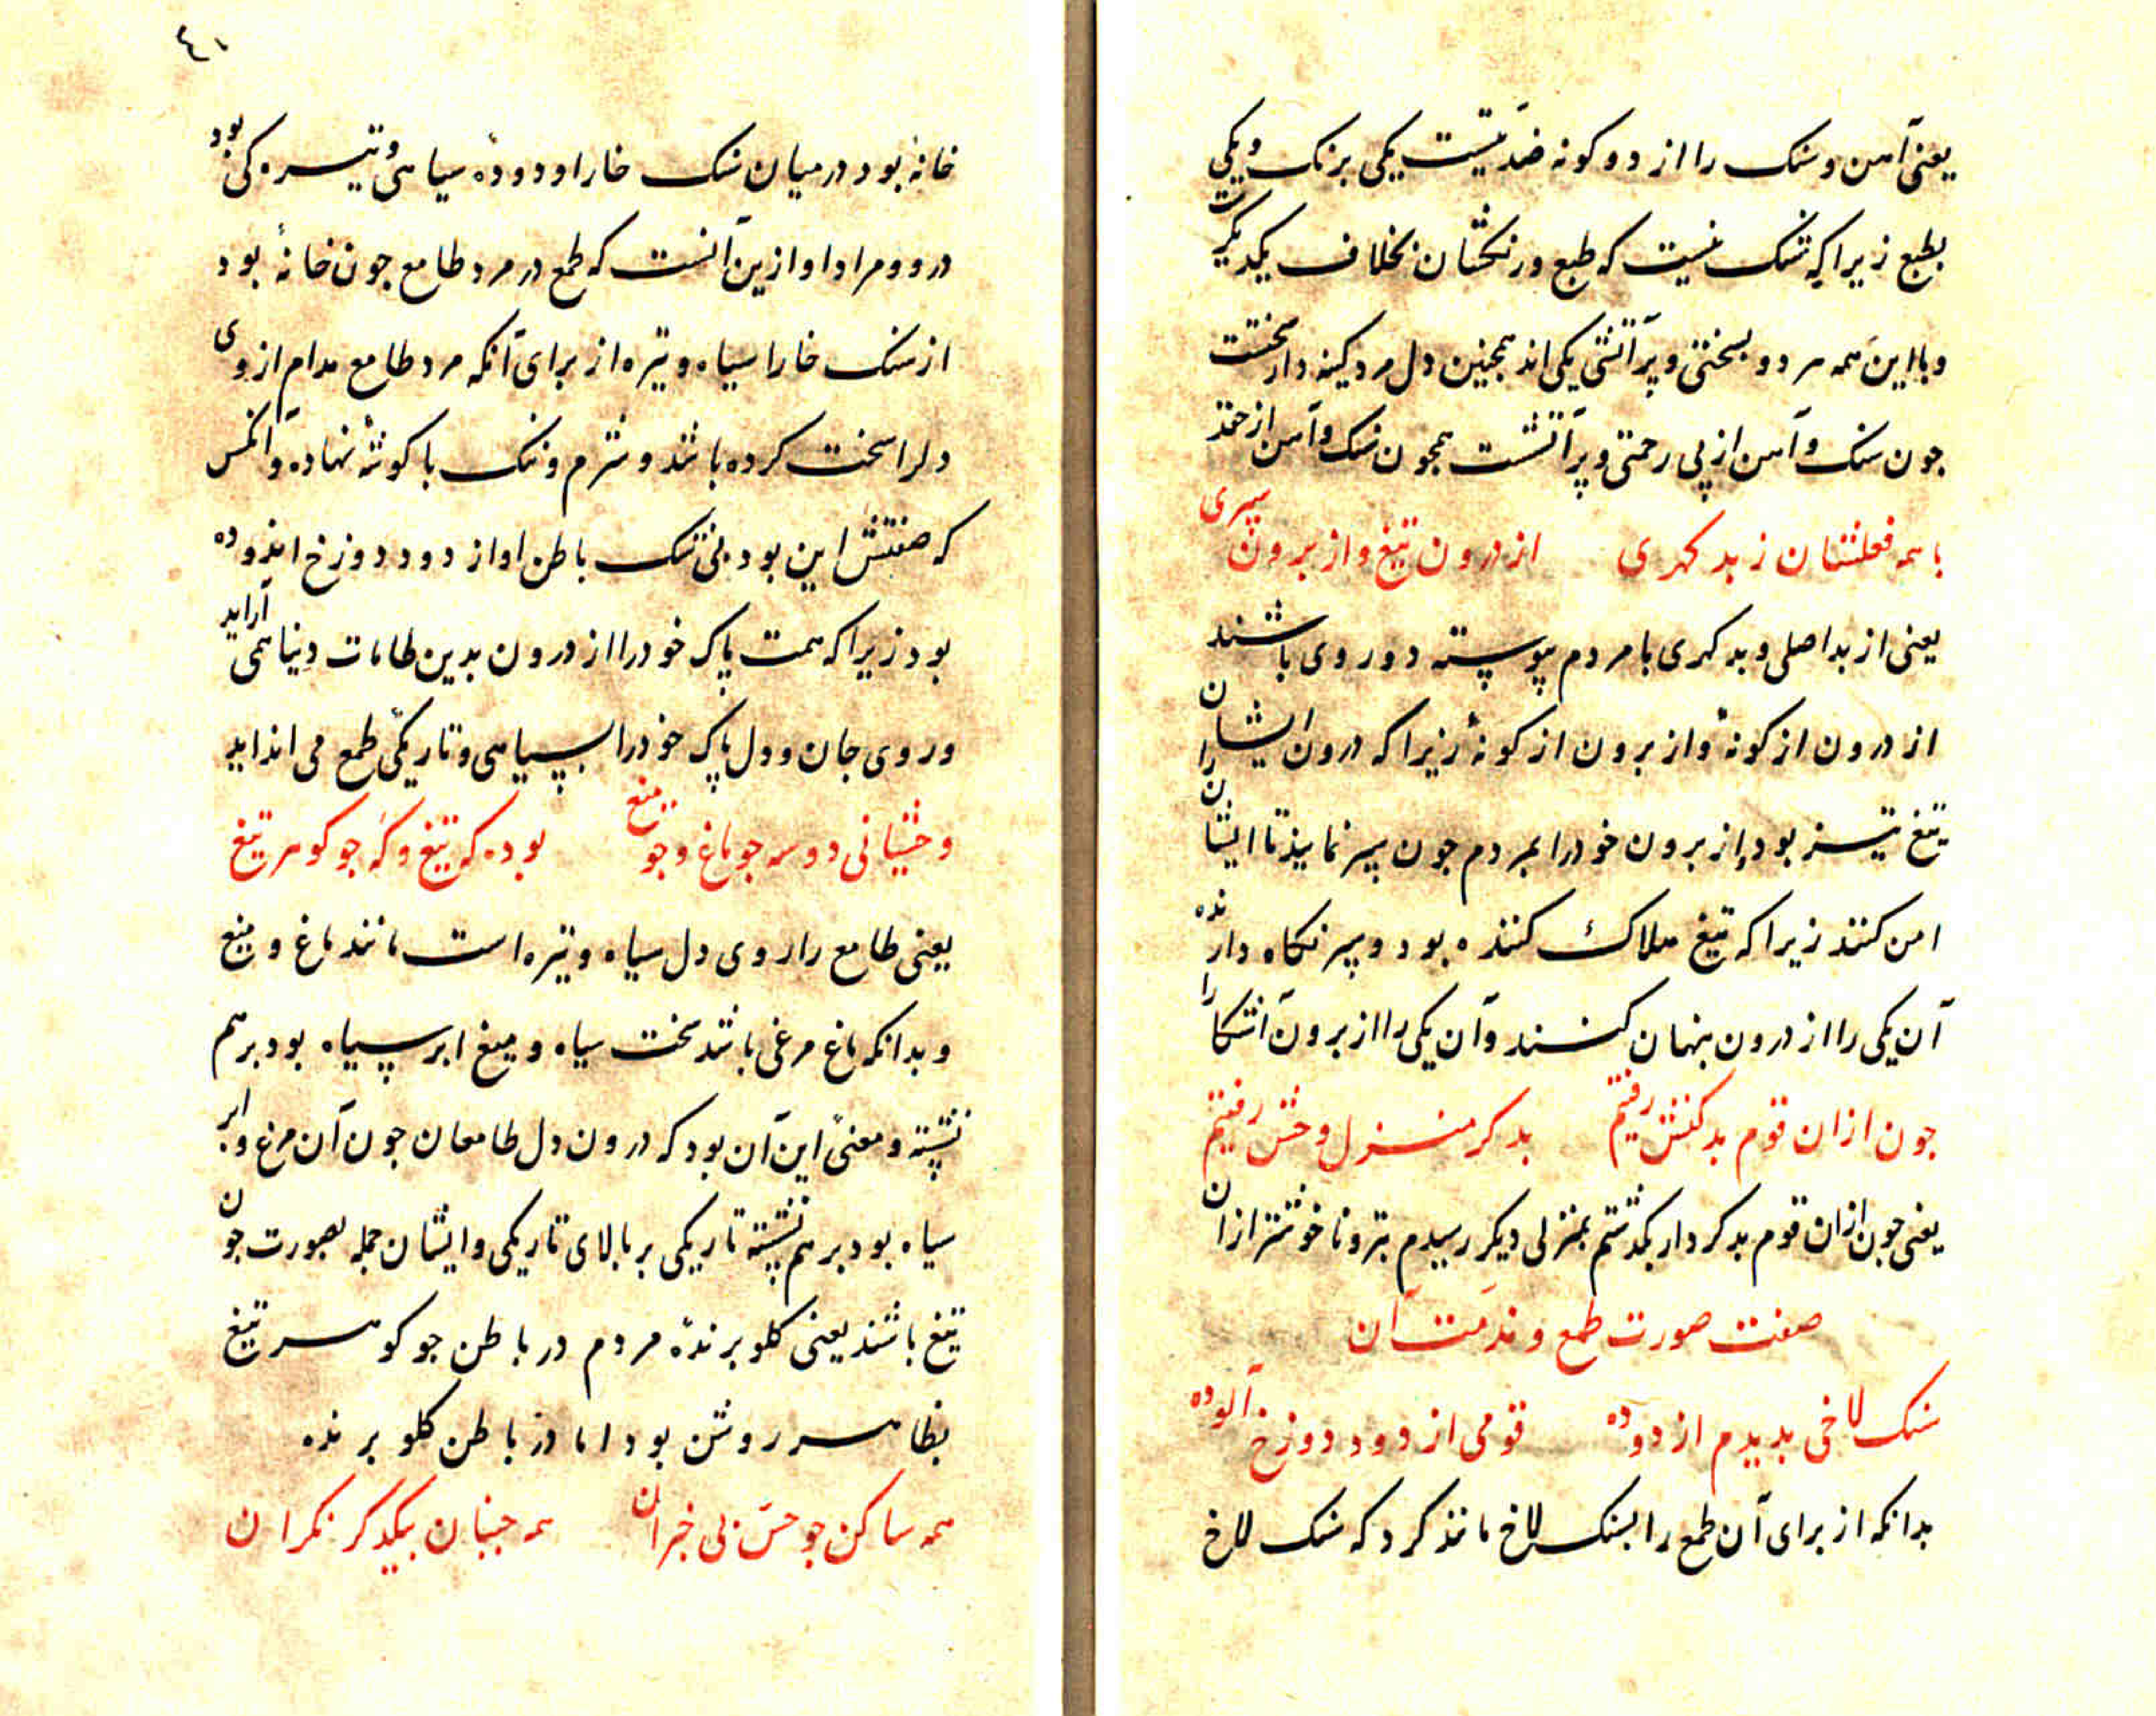 یعنی آهن و سنک را از دو کونه ضدّیتست یکی برنک و یکی
بطبع زیرا که شک نیست که طبع و رنکشان بخلاف یکدیکرست
و با این همه هر دو بسختی و پر آتشی یکی اند همجنین دل مرد کینه دار سختست
جون سنک و آهن از بی رحمتی و پر آتشست همجون سنک و آهن از حقد
با همه فعلشان ز بد کهری از درون تیغ و از برون سپری
یعنی از بد اصلی و بد کهری با مردم پیوسته دو روی باشند
از درون از کونهٔ و از برون از کونهٔ زیرا که درون ایشان را
تیغ تیز بود و از برون خود را بمردم جون سپر نمایند تا ایشان
امن کنند زیرا که تیغ هلاک کننده بود و سپر نکاه دارنده
آن یکی را از درون پنهان کنند و آن یکی را از برون آشکارا
جون ازان قوم بد کنش رفتم بد کر منزل وحش رفتم
یعنی جون ازان قوم بد کردار بکذشتم بمنزلی دیکر رسیدم بتر و ناخوشتر ازان
صفت صورت طمع و مذمت آن
سنک لاخی بدیدم از دوده قومی از دود دوزخ آلوده
بدانکه از برای آن طمع را بسنک لاخ مانند کرد که سنک لاخ
٤١
خانهٔ بود در میان سنک خارا و دوده سیاهی و تیره کی بود
درو و مراد او ازین آنست که طمع در مرد طامع جون خانهٔ بود
از سنک خارا سیاه و تیره از برای آنکه مرد طامع مدام از وی
دلرا سخت کرده باشد و شرم و ننک با کوشه نهاده و آنکس
که صفتش این بود بی شک باطن او از دود دوزخ اندوده
بود زیرا که همت پاک خود را از درون بدین طامات دنیا همی آراید
و روی جان و دل پاک خود را بسیاهی و تاریکی طمع می انداید
وحشیانی دو سه جو ماغ و جو میغ بوده که تیغ و که جو کوهر تیغ
یعنی طامع را روی دل سیاه و تیره است مانند ماغ و میغ
و بدانکه ماغ مرغی باشد سخت سیاه و میغ ابر سیاه بود بر هم
نشسته و معنی این آن بود که درون دل طامعان جون آن مرغ و ابر
سیاه بود بر هم نشسته تاریکی بر بالای تاریکی و ایشان جمله بصورت جون
تیغ باشند یعنی کلو برندهٔ مردم در باطن جو کوهر تیغ
بظاهر روشن بود اما در باطن کلو برنده
همه ساکن جو حسّ بی خبران همه جنبان بیکدکر نکران